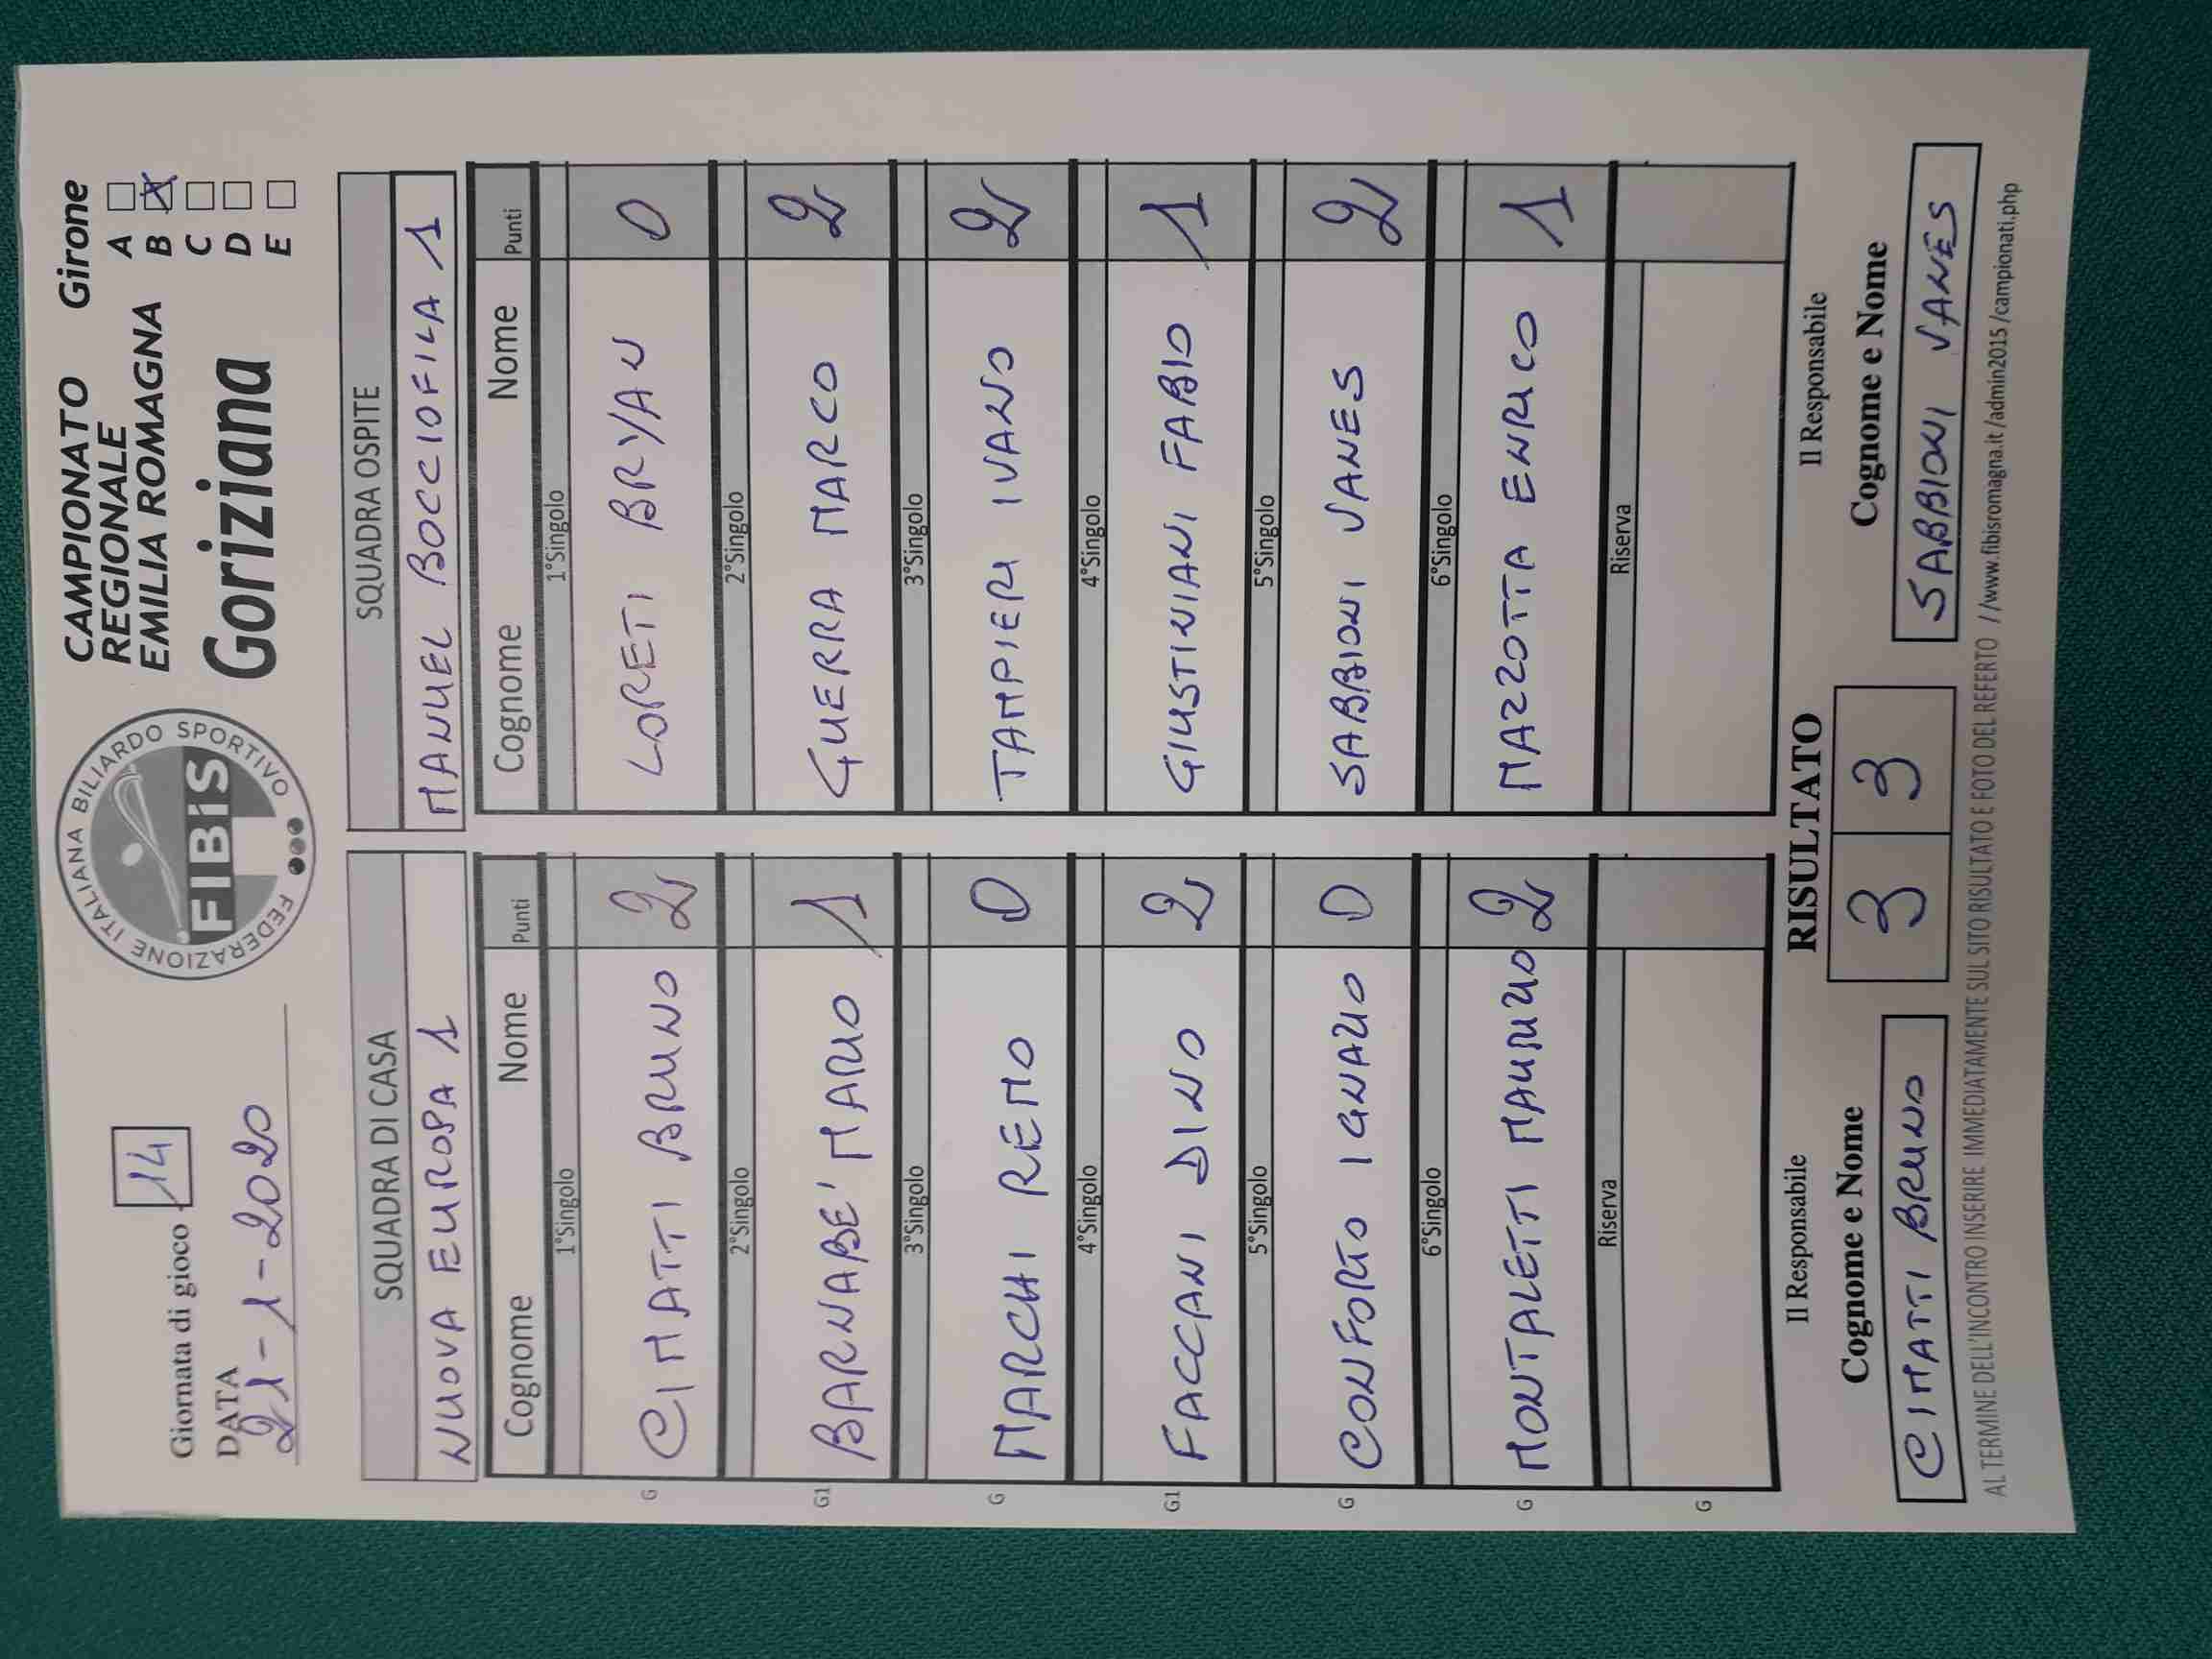 Giornata di gioco 14
DATA
21-1-2020
FEDERAZIONE ITALIANA BILIARDO SPORTIVO
FIBIS
CAMPIONATO
REGIONALE
EMILIA ROMAGNA
Goriziana
Girone
A
B X
C
D
E
SQUADRA DI CASA SQUADRA OSPITE
NUOVA EUROPA 1 MANUEL BOCCIOFILA 1
Cognome Nome Punti Cognome Nome Punti
1°Singolo 1°Singolo
G CIMATTI BRUNO 2 LORETI BRYAN 0
2°Singolo 2°Singolo
G1 BARNABE' MARIO 1 GUERRA MARCO 2
3°Singolo 3°Singolo
G MARCHI REMO 0 TAMPIERI IVANO 2
4°Singolo 4°Singolo
G1 FACCANI DINO 2 GIUSTINIANI FABIO 1
5°Singolo 5°Singolo
G CONFORTO IGNAZIO 0 SABBIONI VANES 2
6°Singolo 6°Singolo
G MONTALETTI MAURIZIO 2 MAZZOTTA ENRICO 1
Riserva Riserva
G
Il Responsabile RISULTATO Il Responsabile
Cognome e Nome 3 3 Cognome e Nome
CIMATTI BRUNO SABBIONI VANES
AL TERMINE DELL'INCONTRO INSERIRE IMMEDIATAMENTE SUL SITO RISULTATO E FOTO DEL REFERTO //www.fibisromagna.it/admin2015/campionati.php